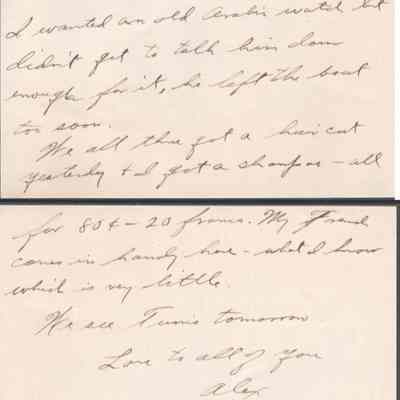 I wanted an old Arabic watch but
didn't get to talk him down
enough for it, he left the boat
too soon.
We all three got a haircut
yesterday & I got a shampoo - all
for 80¢ - 20 francs. My French
comes in handy here - what I know
which is very little.
We see Tunis tomorrow
Love to all of you
Alex